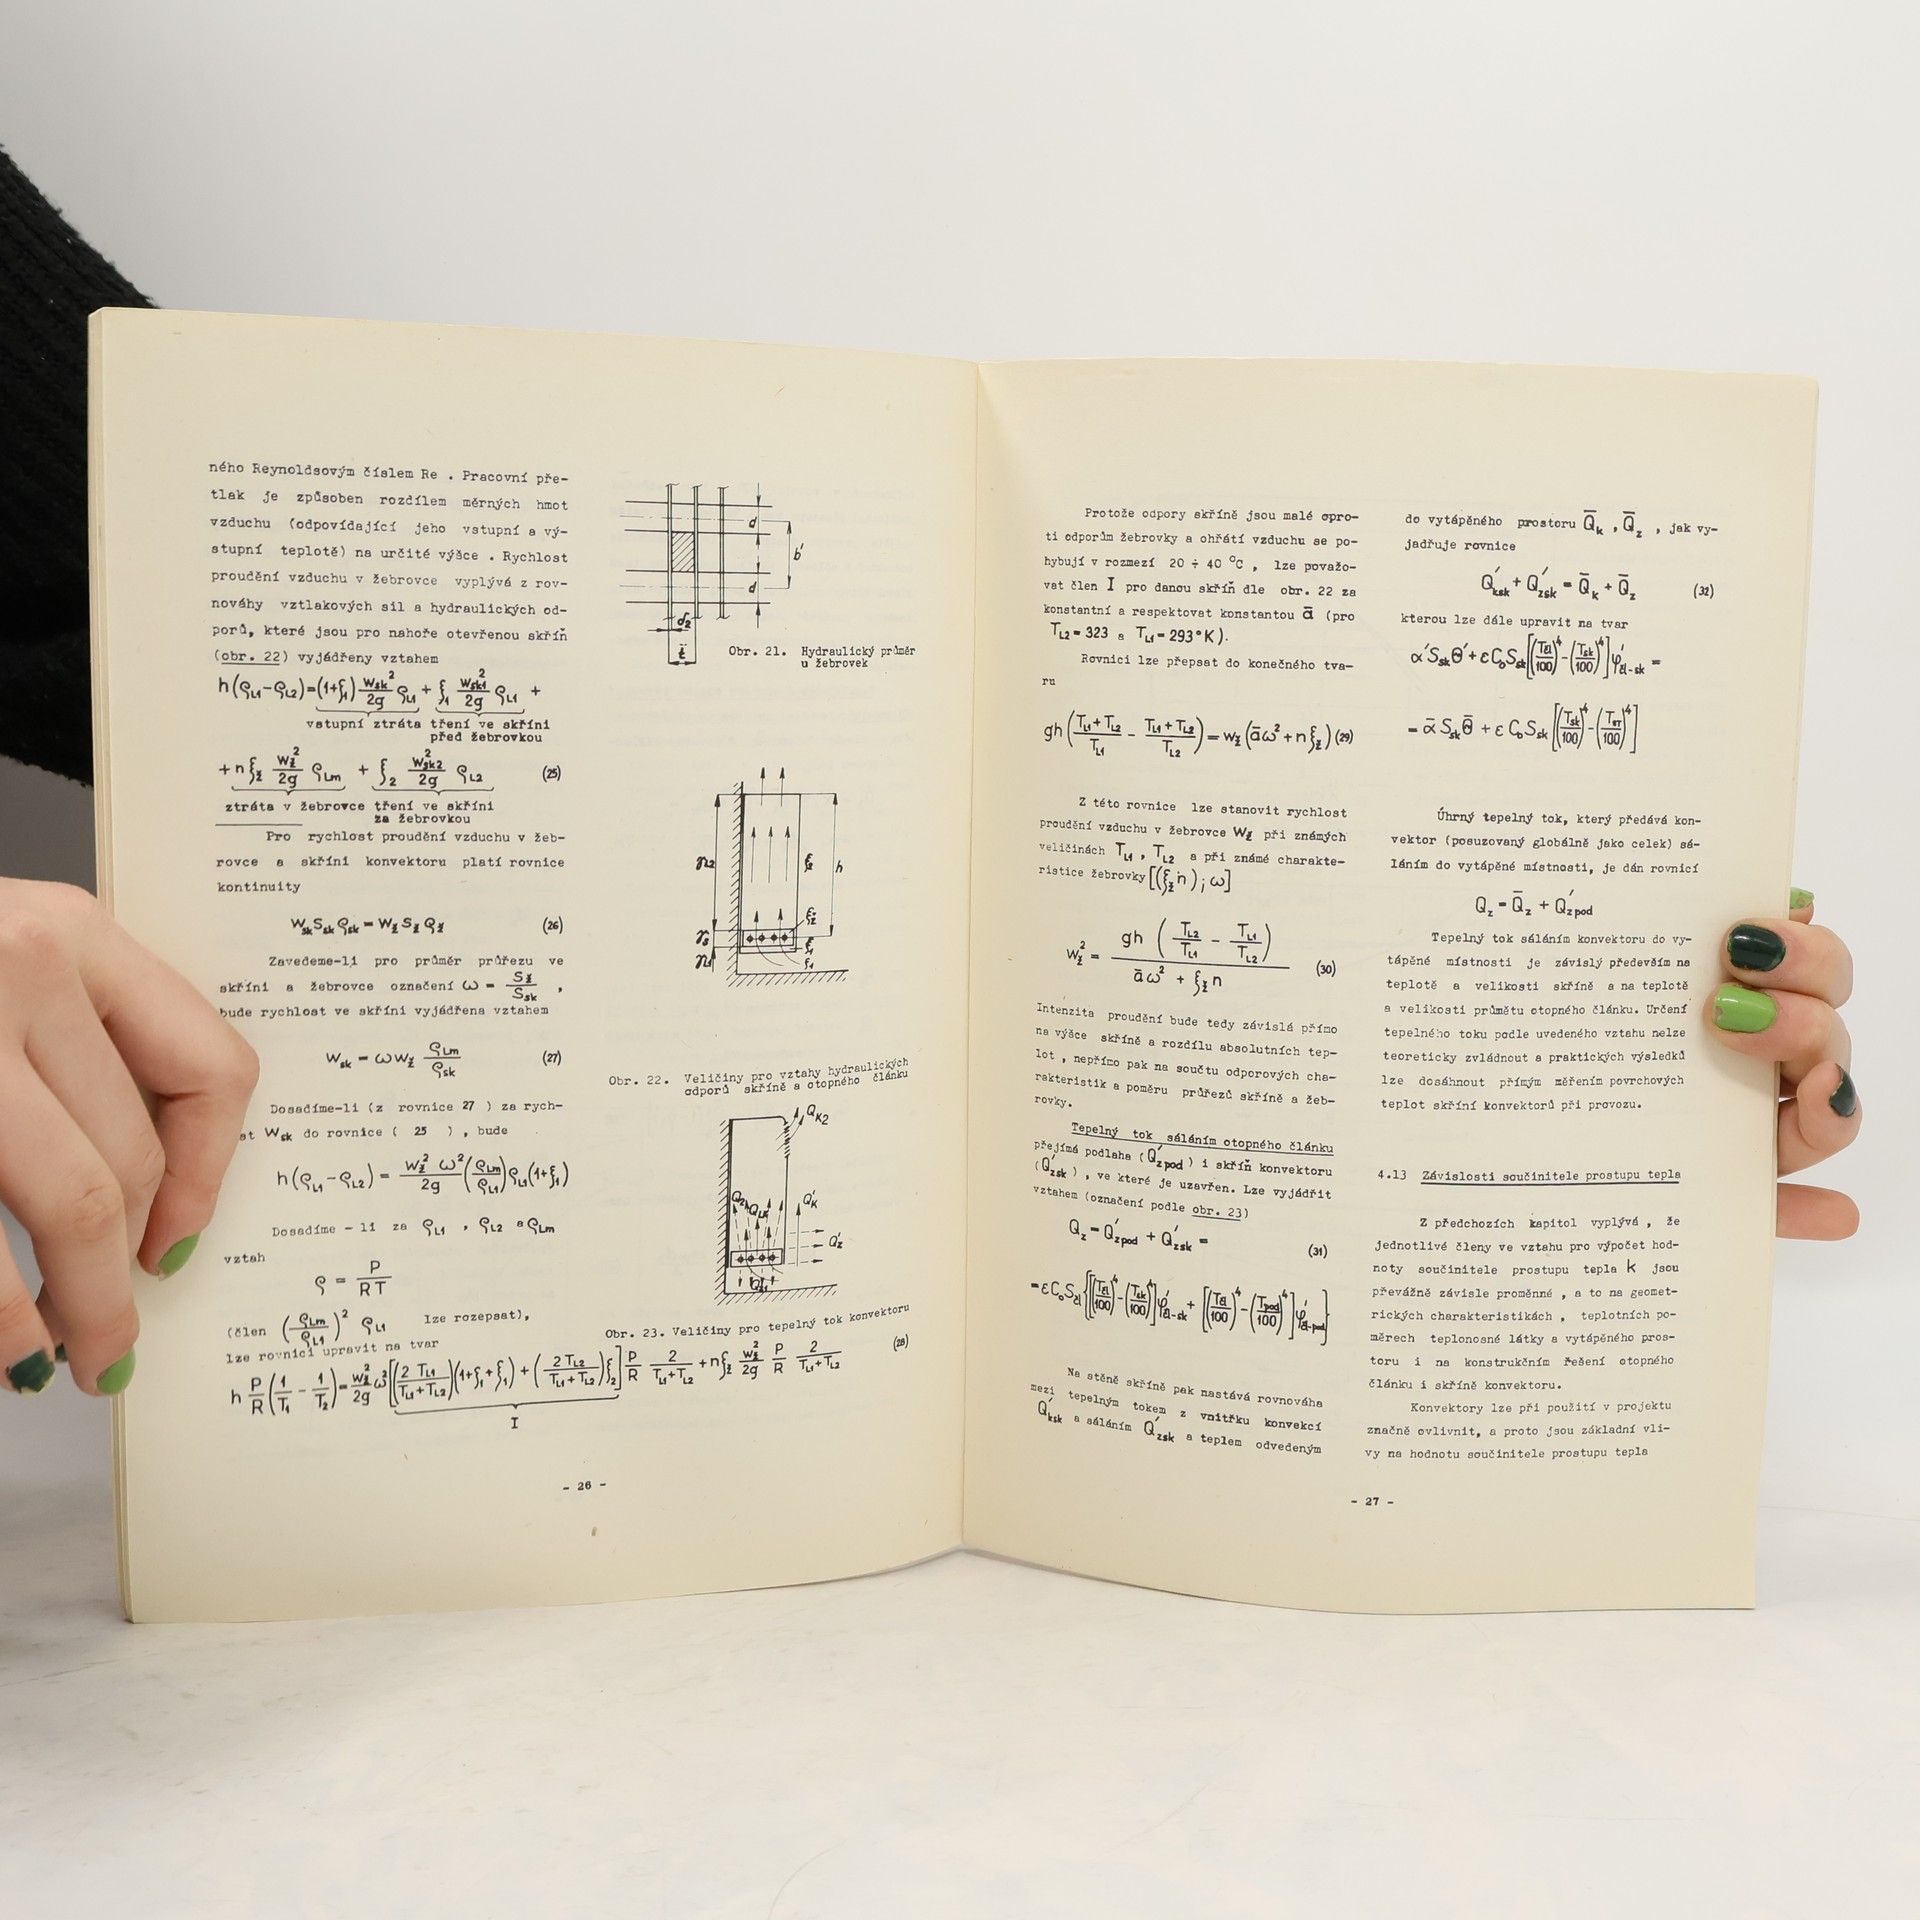 ného Reynoldsovým číslem Re . Pracovní pře-
tlak je způsoben rozdílem měrných hmot
vzduchu (odpovídající jeho vstupní a vý-
stupní teplotě) na určité výšce . Rychlost
proudění vzduchu v žebrovce vyplývá z rov-
nováhy vztlakových sil a hydraulických od-
porů, které jsou pro nahoře otevřenou skříň
(obr. 22) vyjádřeny vztahem
h(ρL1-ρL2)=(1+ξ1) wsk²/2g ρL1 + ξ1 wsk1²/2g ρL1 +
vstupní ztráta tření ve skříni
před žebrovkou
+nξž wž²/2g ρLm + ξ2 wsk2²/2g ρL2 (25)
ztráta v žebrovce tření ve skříni
za žebrovkou
Pro rychlost proudění vzduchu v žeb-
rovce a skříni konvektoru platí rovnice
kontinuity
wsk Ssk ρsk = wž Sž ρž (26)
Zavedeme-li pro průměr průřezu ve
skříni a žebrovce označení ω = Sž/Ssk ,
bude rychlost ve skříni vyjádřena vztahem
wsk = ωwž ρLm/ρsk (27)
Dosadíme-li (z rovnice 27 ) za rych-
st wsk do rovnice ( 25 ) , bude
h(ρL1-ρL2) = wž² ω²/2g (ρLm/ρL1) ρL1(1+ξ1)
Dosadíme - li za ρL1 , ρL2 a ρLm
vztah
ρ = P/RT
(člen (ρLm/ρL1)² ρL1 lze rozepsat),
lze rovnici upravit na tvar
h P/R (1/T1 - 1/T2) = wž²/2g ω² [(2 TL1/TL1+TL2)(1+ξ1+ξ1) + (2 TL2/TL1+TL2)ξ2] P/R 2/TL1+TL2 + nξž wž²/2g P/R 2/TL1+TL2 (28)
I
d
b'
d
d2
t
Obr. 21. Hydraulický průměr
u žebrovek
γ2
ξ2
h
ξž
γs
γ1
ξ1
Obr. 22. Veličiny pro vztahy hydraulických
odporů skříně a otopného článku
QK2
Q'K
Q'z
Obr. 23. Veličiny pro tepelný tok konvektoru
- 26 -
Protože odpory skříně jsou malé opro-
ti odporům žebrovky a ohřátí vzduchu se po-
hybují v rozmezí 20 ÷ 40 °C , lze považo-
vat člen I pro danou skříň dle obr. 22 za
konstantní a respektovat konstantou ā (pro
TL2 = 323 a TL1 = 293°K).
Rovnici lze přepsat do konečného tva-
ru
gh(TL1+TL2/TL1 - TL1+TL2/TL2) = wž(āω²+nξž) (29)
Z této rovnice lze stanovit rychlost
proudění vzduchu v žebrovce wž při známých
veličinách TL1 , TL2 a při známé charakte-
ristice žebrovky [(ξž n) ; ω]
wž² = gh (TL2/TL1 - TL1/TL2) / āω² + ξž n (30)
Intenzita proudění bude tedy závislá přímo
na výšce skříně a rozdílu absolutních tep-
lot , nepřímo pak na součtu odporových cha-
rakteristik a poměru průřezů skříně a žeb-
rovky.
Tepelný tok sáláním otopného článku
přejímá podlaha (Q'zpod) i skříň konvektoru
(Q'zsk) , ve které je uzavřen. Lze vyjádřit
vztahem (označení podle obr. 23)
Qz = Q'zpod + Q'zsk = (31)
= εCoSčl{[(Tčl/100)⁴-(Tsk/100)⁴]φ'čl-sk + [(Tčl/100)⁴-(Tpod/100)⁴]φ'čl-pod}
Na stěně skříně pak nastává rovnováha
mezi tepelným tokem z vnitřku konvekcí
Q'ksk a sáláním Q'zsk a teplem odvedeným
do vytápěného prostoru Q̄k , Q̄z , jak vy-
jadřuje rovnice
Q'ksk + Q'zsk = Q̄k + Q̄z (32)
kterou lze dále upravit na tvar
α'SskΘ' + εCoSsk[(Tčl/100)⁴-(Tsk/100)⁴]φ'čl-sk =
= ᾱ SskΘ̄ + εCoSsk[(Tsk/100)⁴-(Tst/100)⁴]
Úhrný tepelný tok, který předává kon-
vektor (posuzovaný globálně jako celek) sá-
láním do vytápěné místnosti, je dán rovnicí
Qz = Q̄z + Q'zpod
Tepelný tok sáláním konvektoru do vy-
tápěné místnosti je závislý především na
teplotě a velikosti skříně a na teplotě
a velikosti průmětu otopného článku. Určení
tepelného toku podle uvedeného vztahu nelze
teoreticky zvládnout a praktických výsledků
lze dosáhnout přímým měřením povrchových
teplot skříní konvektorů při provozu.
4.13 Závislosti součinitele prostupu tepla
Z předchozích kapitol vyplývá , že
jednotlivé členy ve vztahu pro výpočet hod-
noty součinitele prostupu tepla k jsou
převážně závisle proměnné , a to na geomet-
rických charakteristikách , teplotních po-
měrech teplonosné látky a vytápěného pros-
toru i na konstrukčním řešení otopného
článku i skříně konvektoru.
Konvektory lze při použití v projektu
značně ovlivnit, a proto jsou základní vli-
vy na hodnotu součinitele prostupu tepla
- 27 -